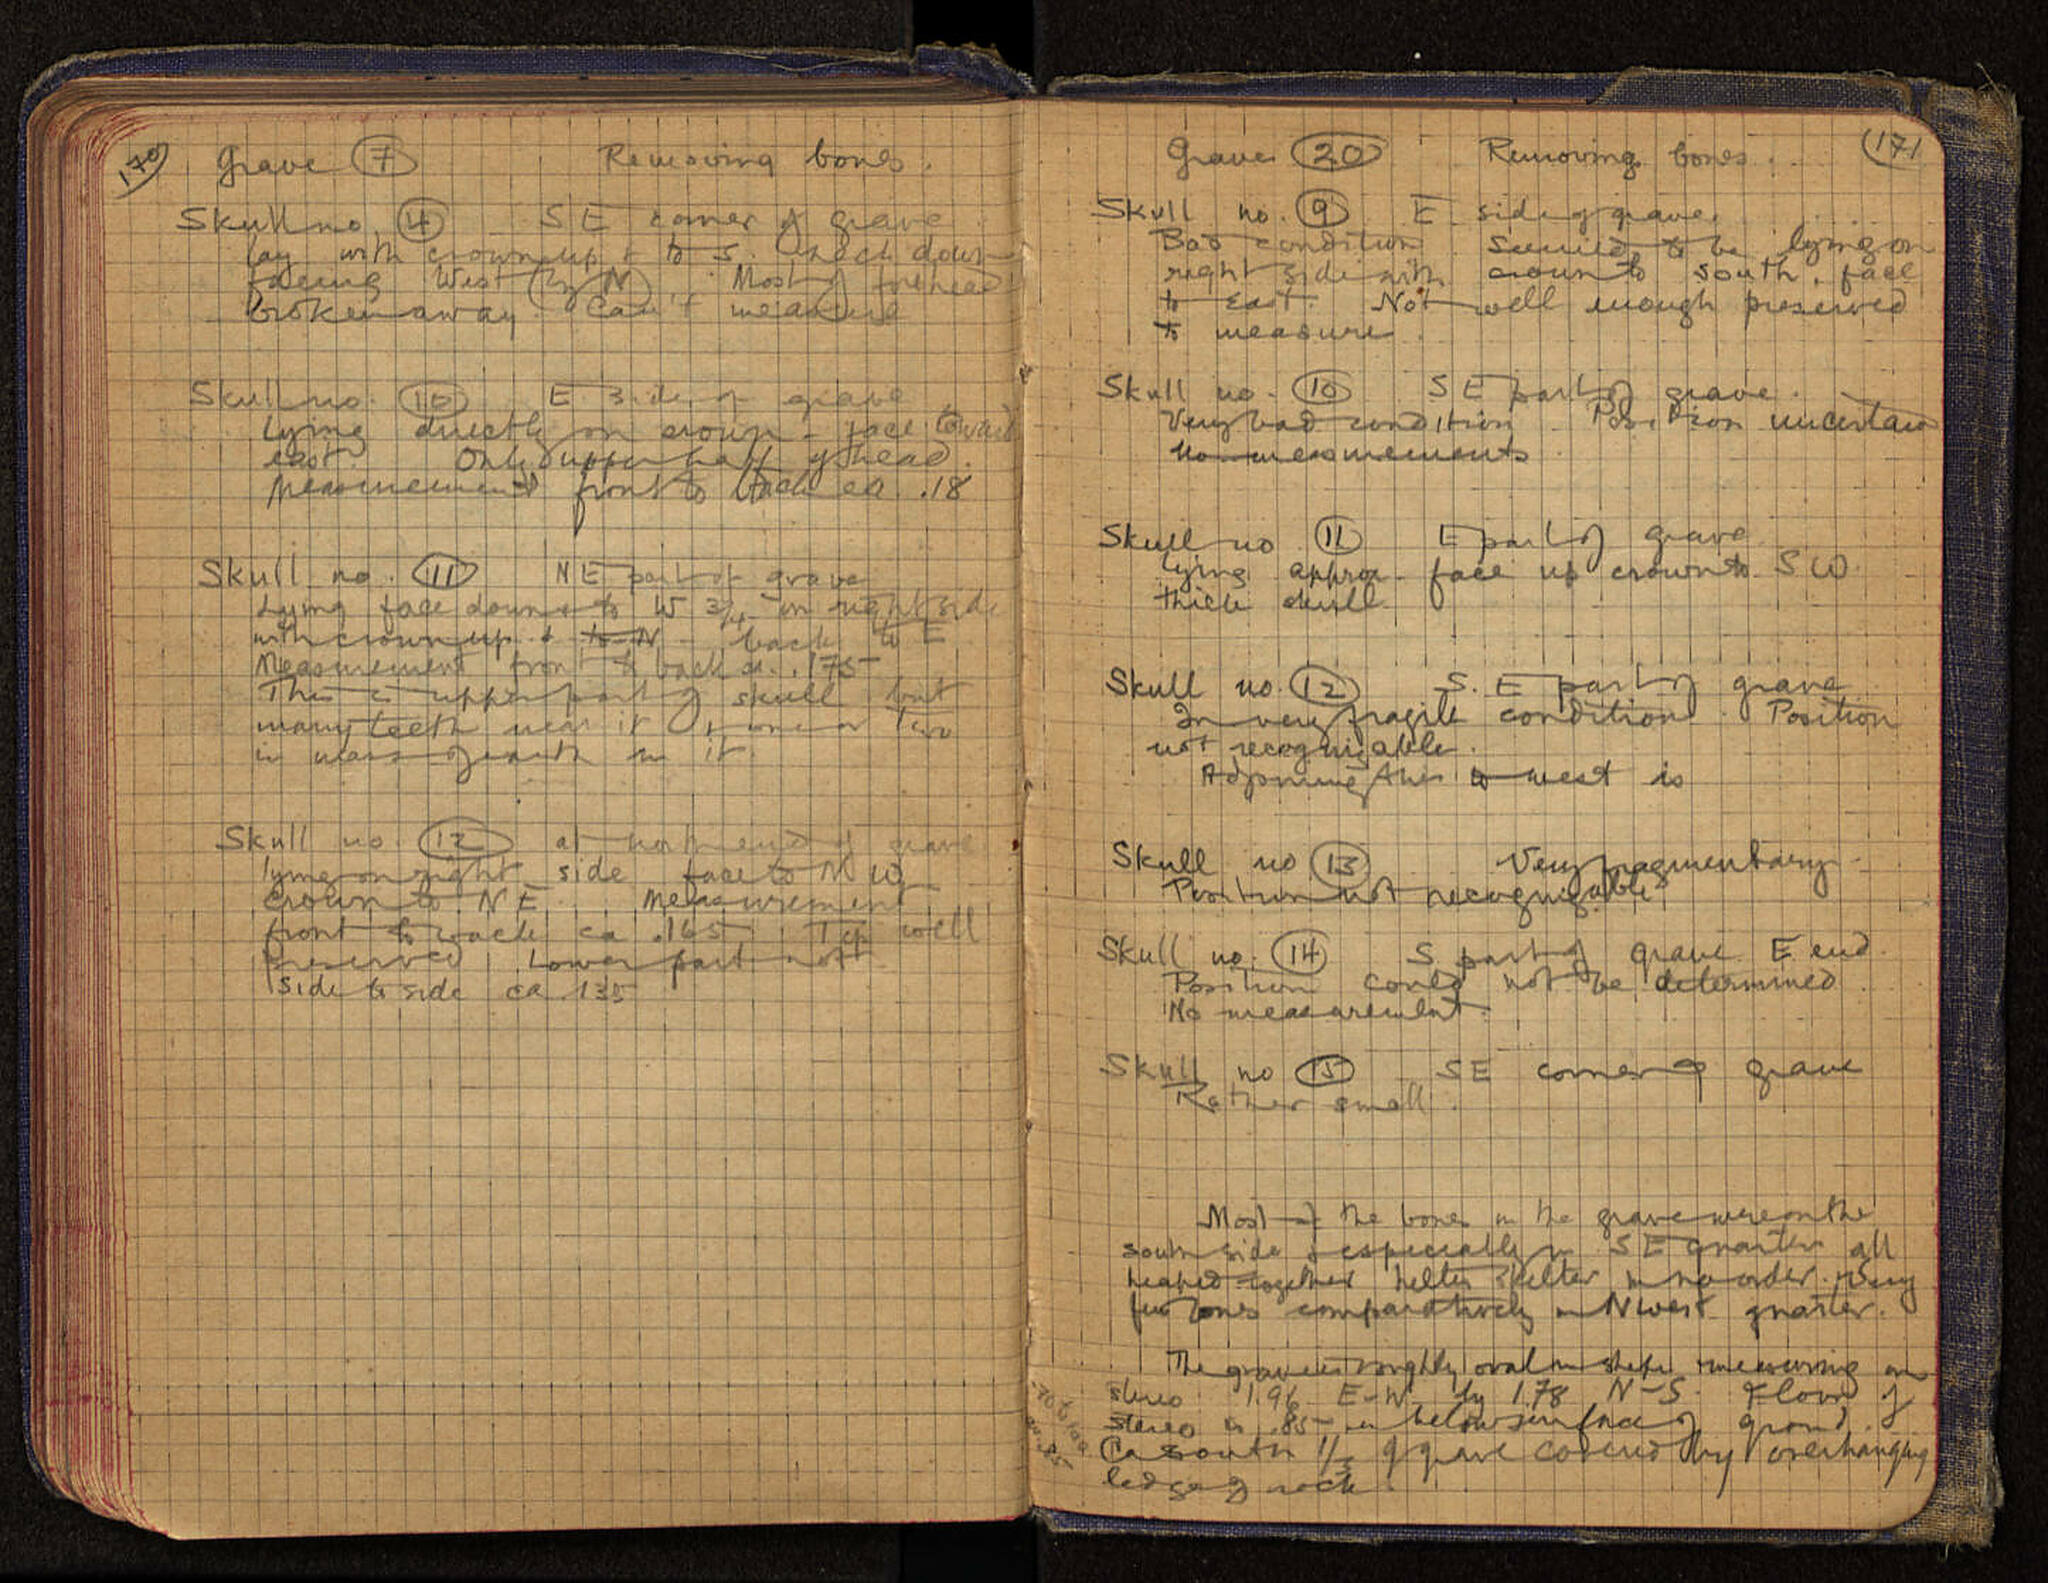 170
Grave 7 Removing bones.
Skull no. 4 SE corner of grave
lay with crown up & to S. neck down
facing West (by N) Most of forehead
broken away. Can't measure
Skull no. 10 E side of grave
Lying directly on crown - face toward
east. Only upper half of head.
Measurement front to back ca .18
Skull no. 11 NE part of grave
Lying face down & to W 3/4 on right side
with crown up & to N back to E
Measurement front to back ca. .175
This is upper part of skull but
many teeth near it & one or two
in mass of earth in it.
Skull no. 12 at north end of grave
lying on right side face to NW
crown to NE. Measurement
front to back ca .165 Top well
preserved Lower part not
Side to side ca .135
171
Grave 20 Removing bones.
Skull no. 9 E side of grave.
Bad condition Seemed to be lying on
right side with crown to south, face
to East. Not well enough preserved
to measure.
Skull no. 10 SE part of grave.
Very bad condition Position uncertain
No measurements
Skull no 11 E part of grave
Lying approx. face up crown to SW
thick skull.
Skull no. 12 S.E part of grave
In very fragile condition. Position
not recognizable.
Adjoining this to west is
Skull no 13 Very fragmentary
Position not recognizable
Skull no. 14 S part of grave E end.
Position could not be determined
No measurement.
Skull no 15 SE corner of grave
Rather small.
Most of the bones in the grave were on the
south side & especially in SE quarter all
heaped together helter skelter in no order. Very
few bones comparatively in N West quarter.
The grave is roughly oval in shape measuring on
stereo 1.96 E-W by 1.78 N-S. Floor of
stereo is .85 m below surface of ground.
Ca south 1/3 of grave covered by overhanging
ledge of rock.